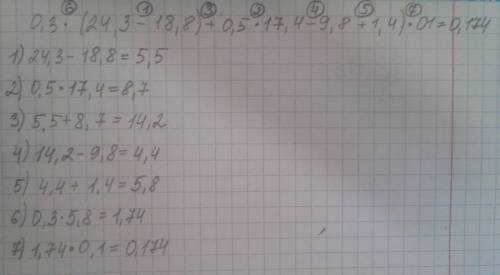 ⑥ ① ③ ② ④ ⑤ ⑦
0,3 · (24,3 − 18,8) + 0,5 · 17,4 − 9,8 + 1,4) · 01 = 0,174
1) 24,3 − 18,8 = 5,5
2) 0,5 · 17,4 = 8,7
3) 5,5 + 8,7 = 14,2
4) 14,2 − 9,8 = 4,4
5) 4,4 + 1,4 = 5,8
6) 0,3 · 5,8 = 1,74
7) 1,74 · 0,1 = 0,174